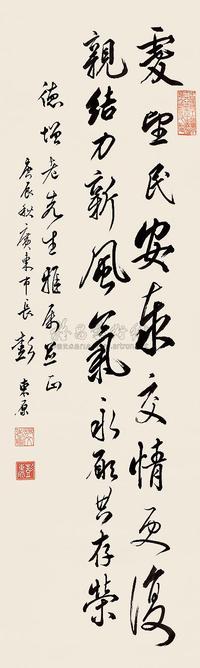 望民安東交情更復
親結力新風氣永願共存榮
德增老先生雅屬正
庚辰秋廣東市長彭東原